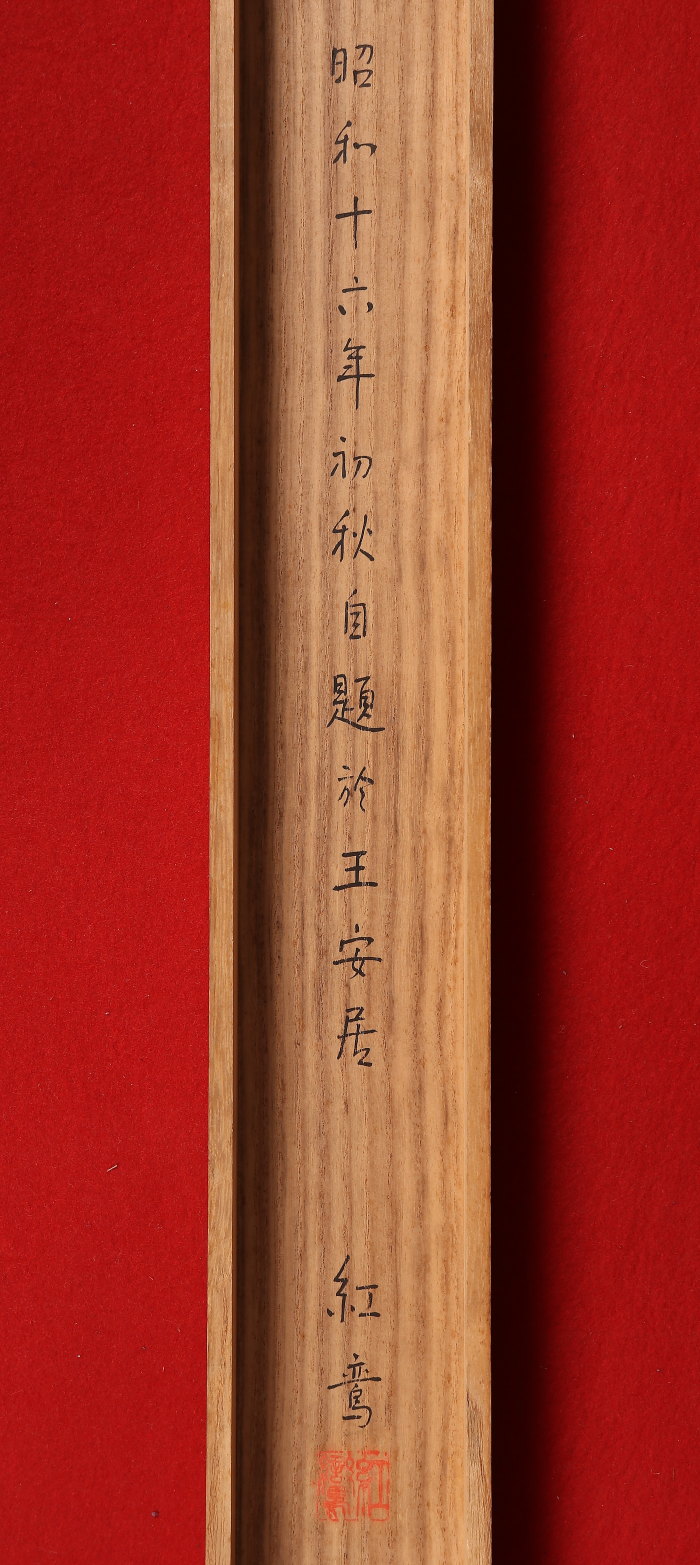 昭和十六年初秋自題於王安居
紅鸾
紅鸞